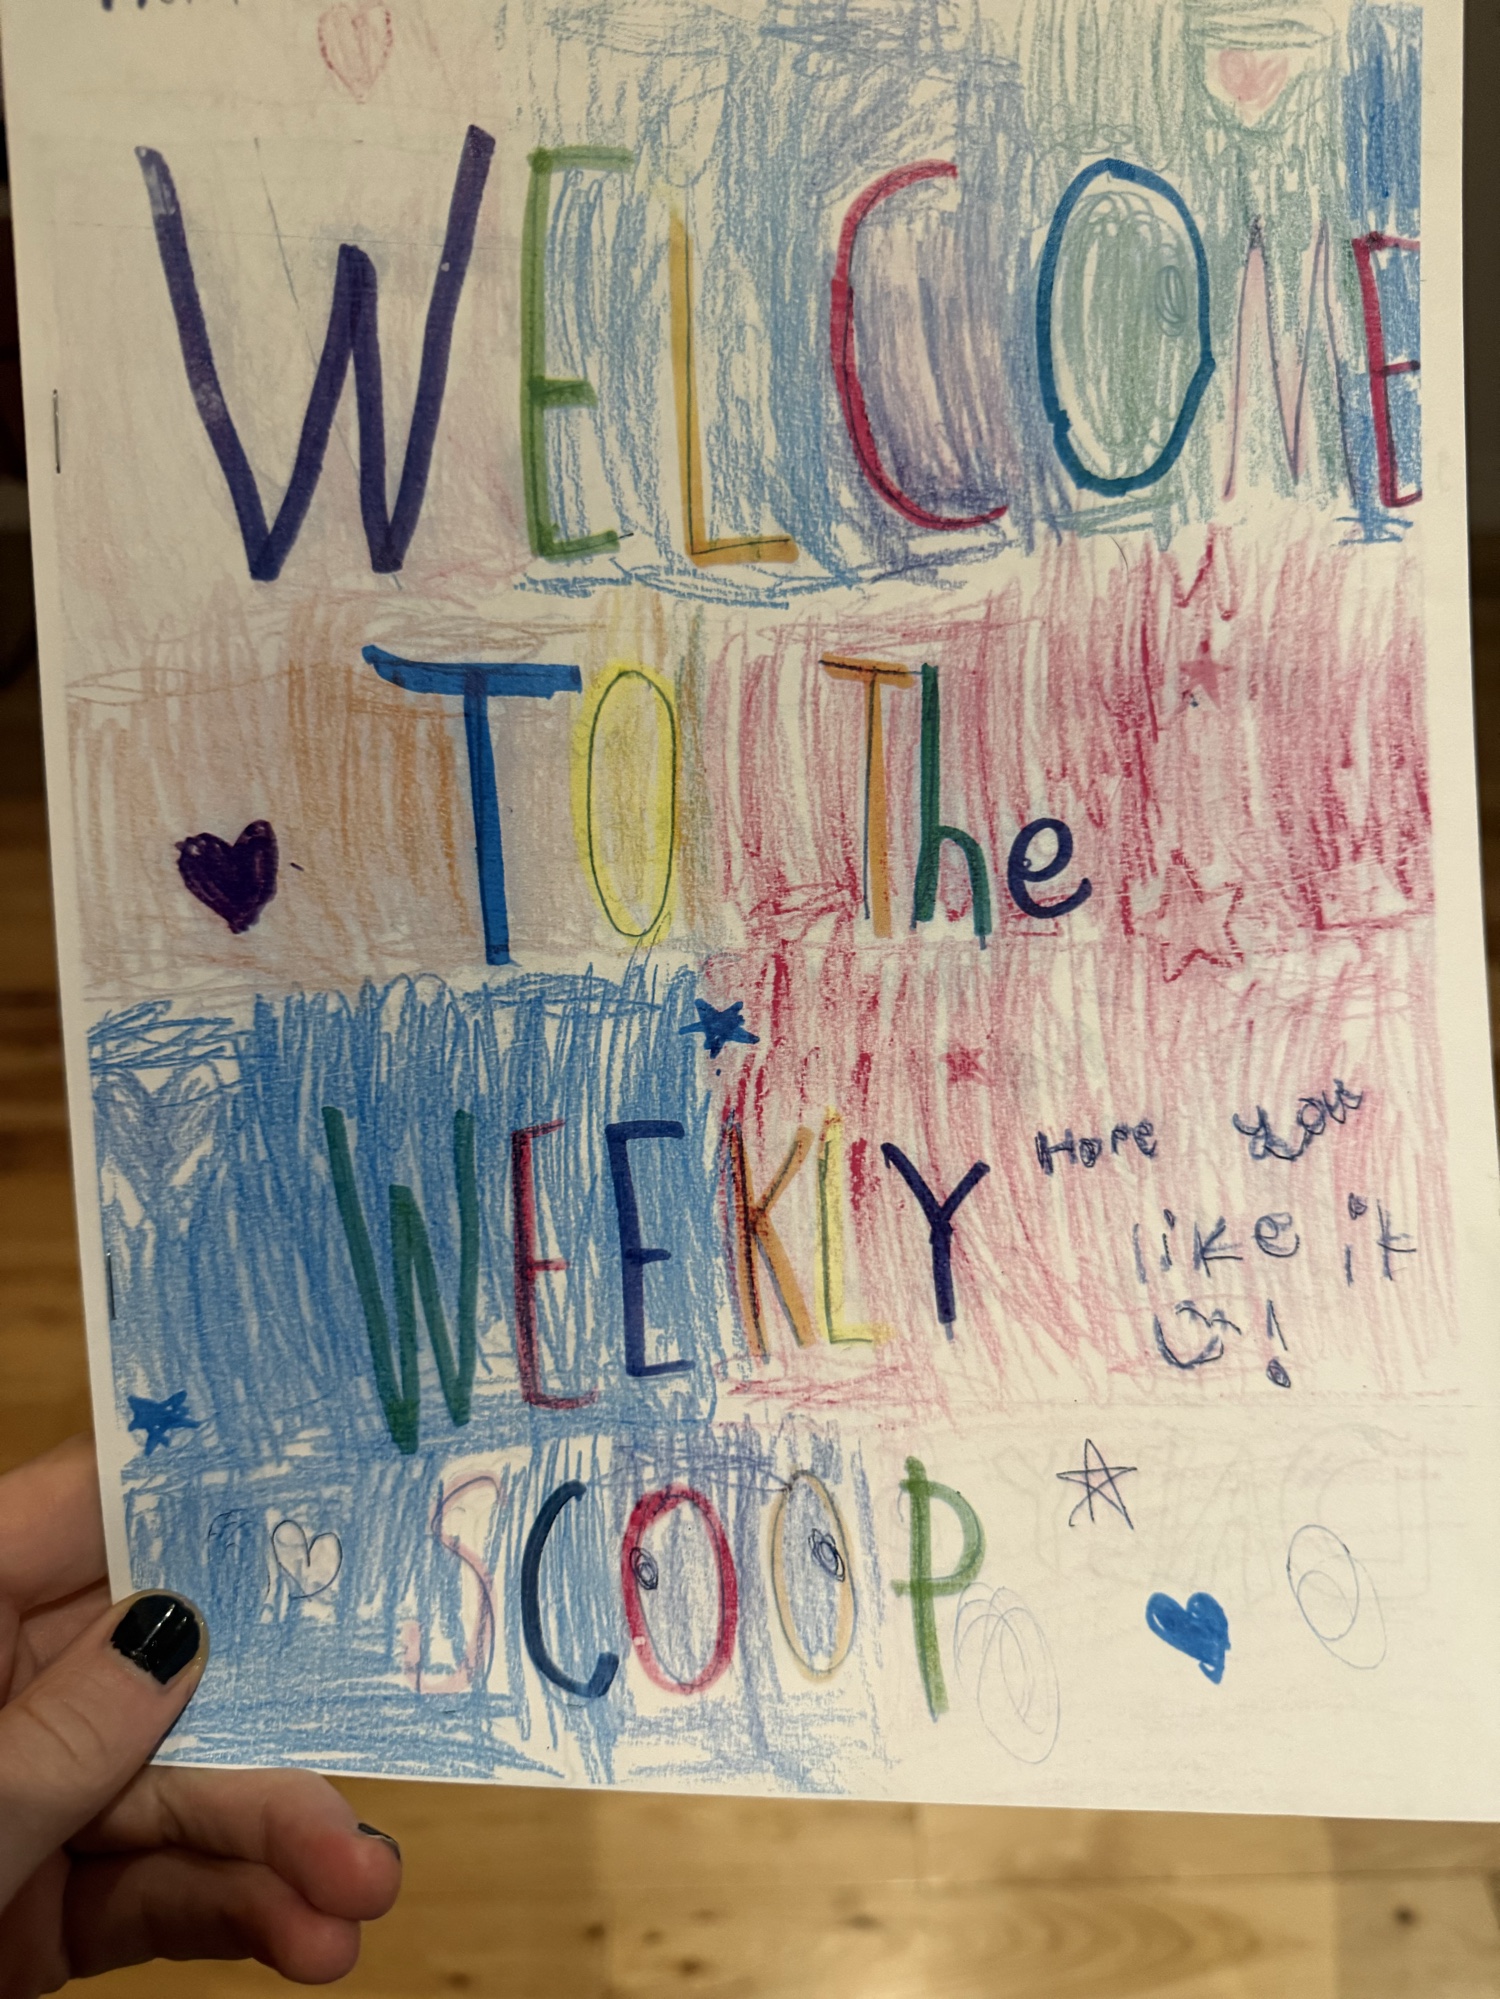 WELCOME
TO The
WEEKLY
Hope You
like it
!
SCOOP